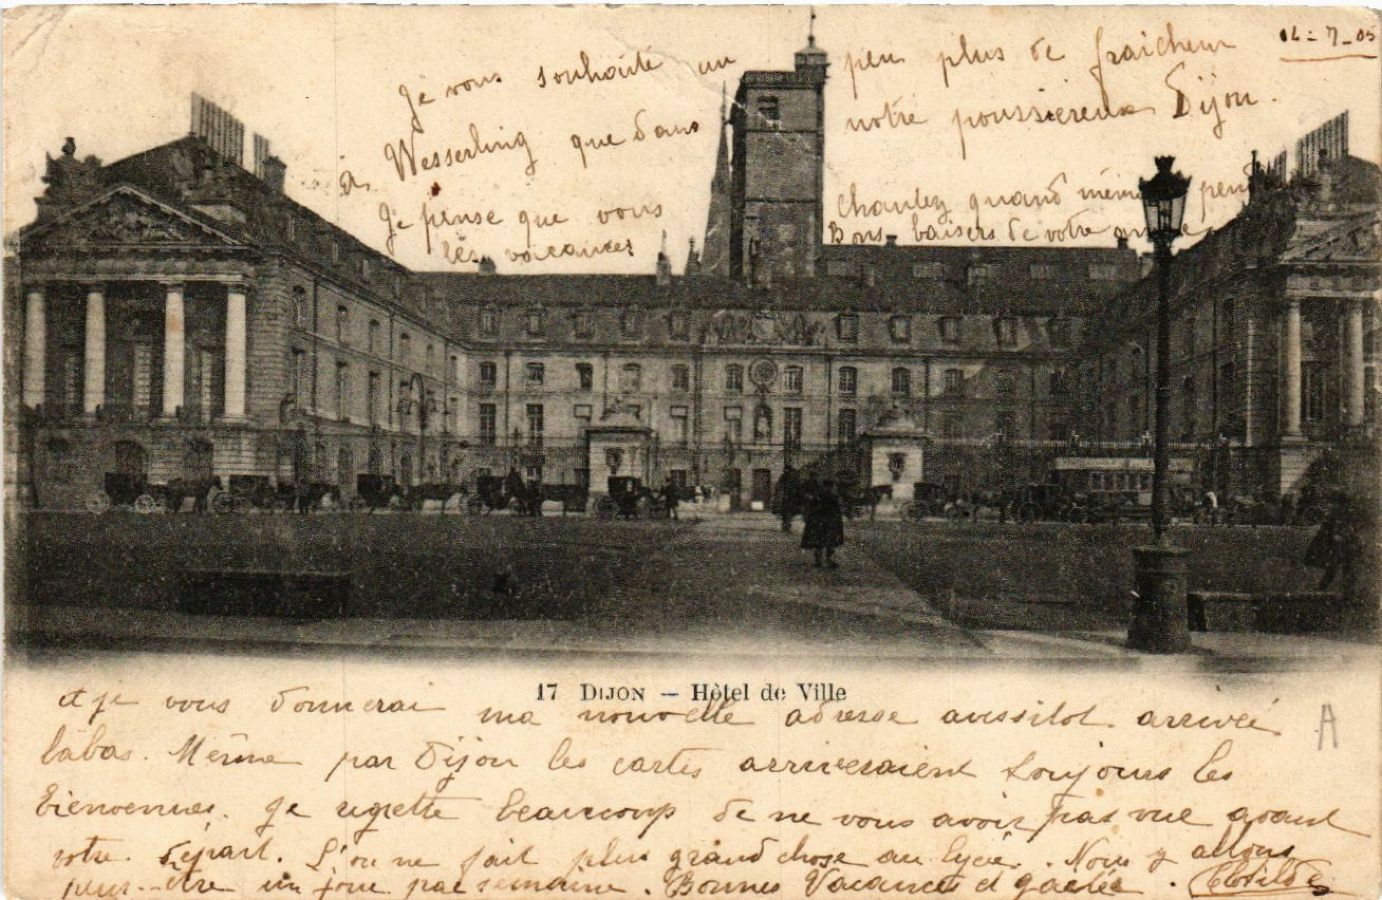 04-7-05
Je vous souhaite un peu plus de fraicheur
à Wesserling que dans notre poussiereux Dijon.
Je pense que vous chantez quand même pend
les vacances Bons baisers de votre amie
17 DIJON — Hôtel de Ville
et je vous donnerai ma nouvelle adresse aussitot arrivée
labas. Même par Dijon les cartes arriveraient toujours les
bienvenues. Je regrette beaucoup de ne vous avoir pas vue avant
votre départ. L'on ne fait plus grand chose au lycée. Nous y allons
peut-être un jour par semaine. Bonnes Vacances et gaietée. Clotilde
A